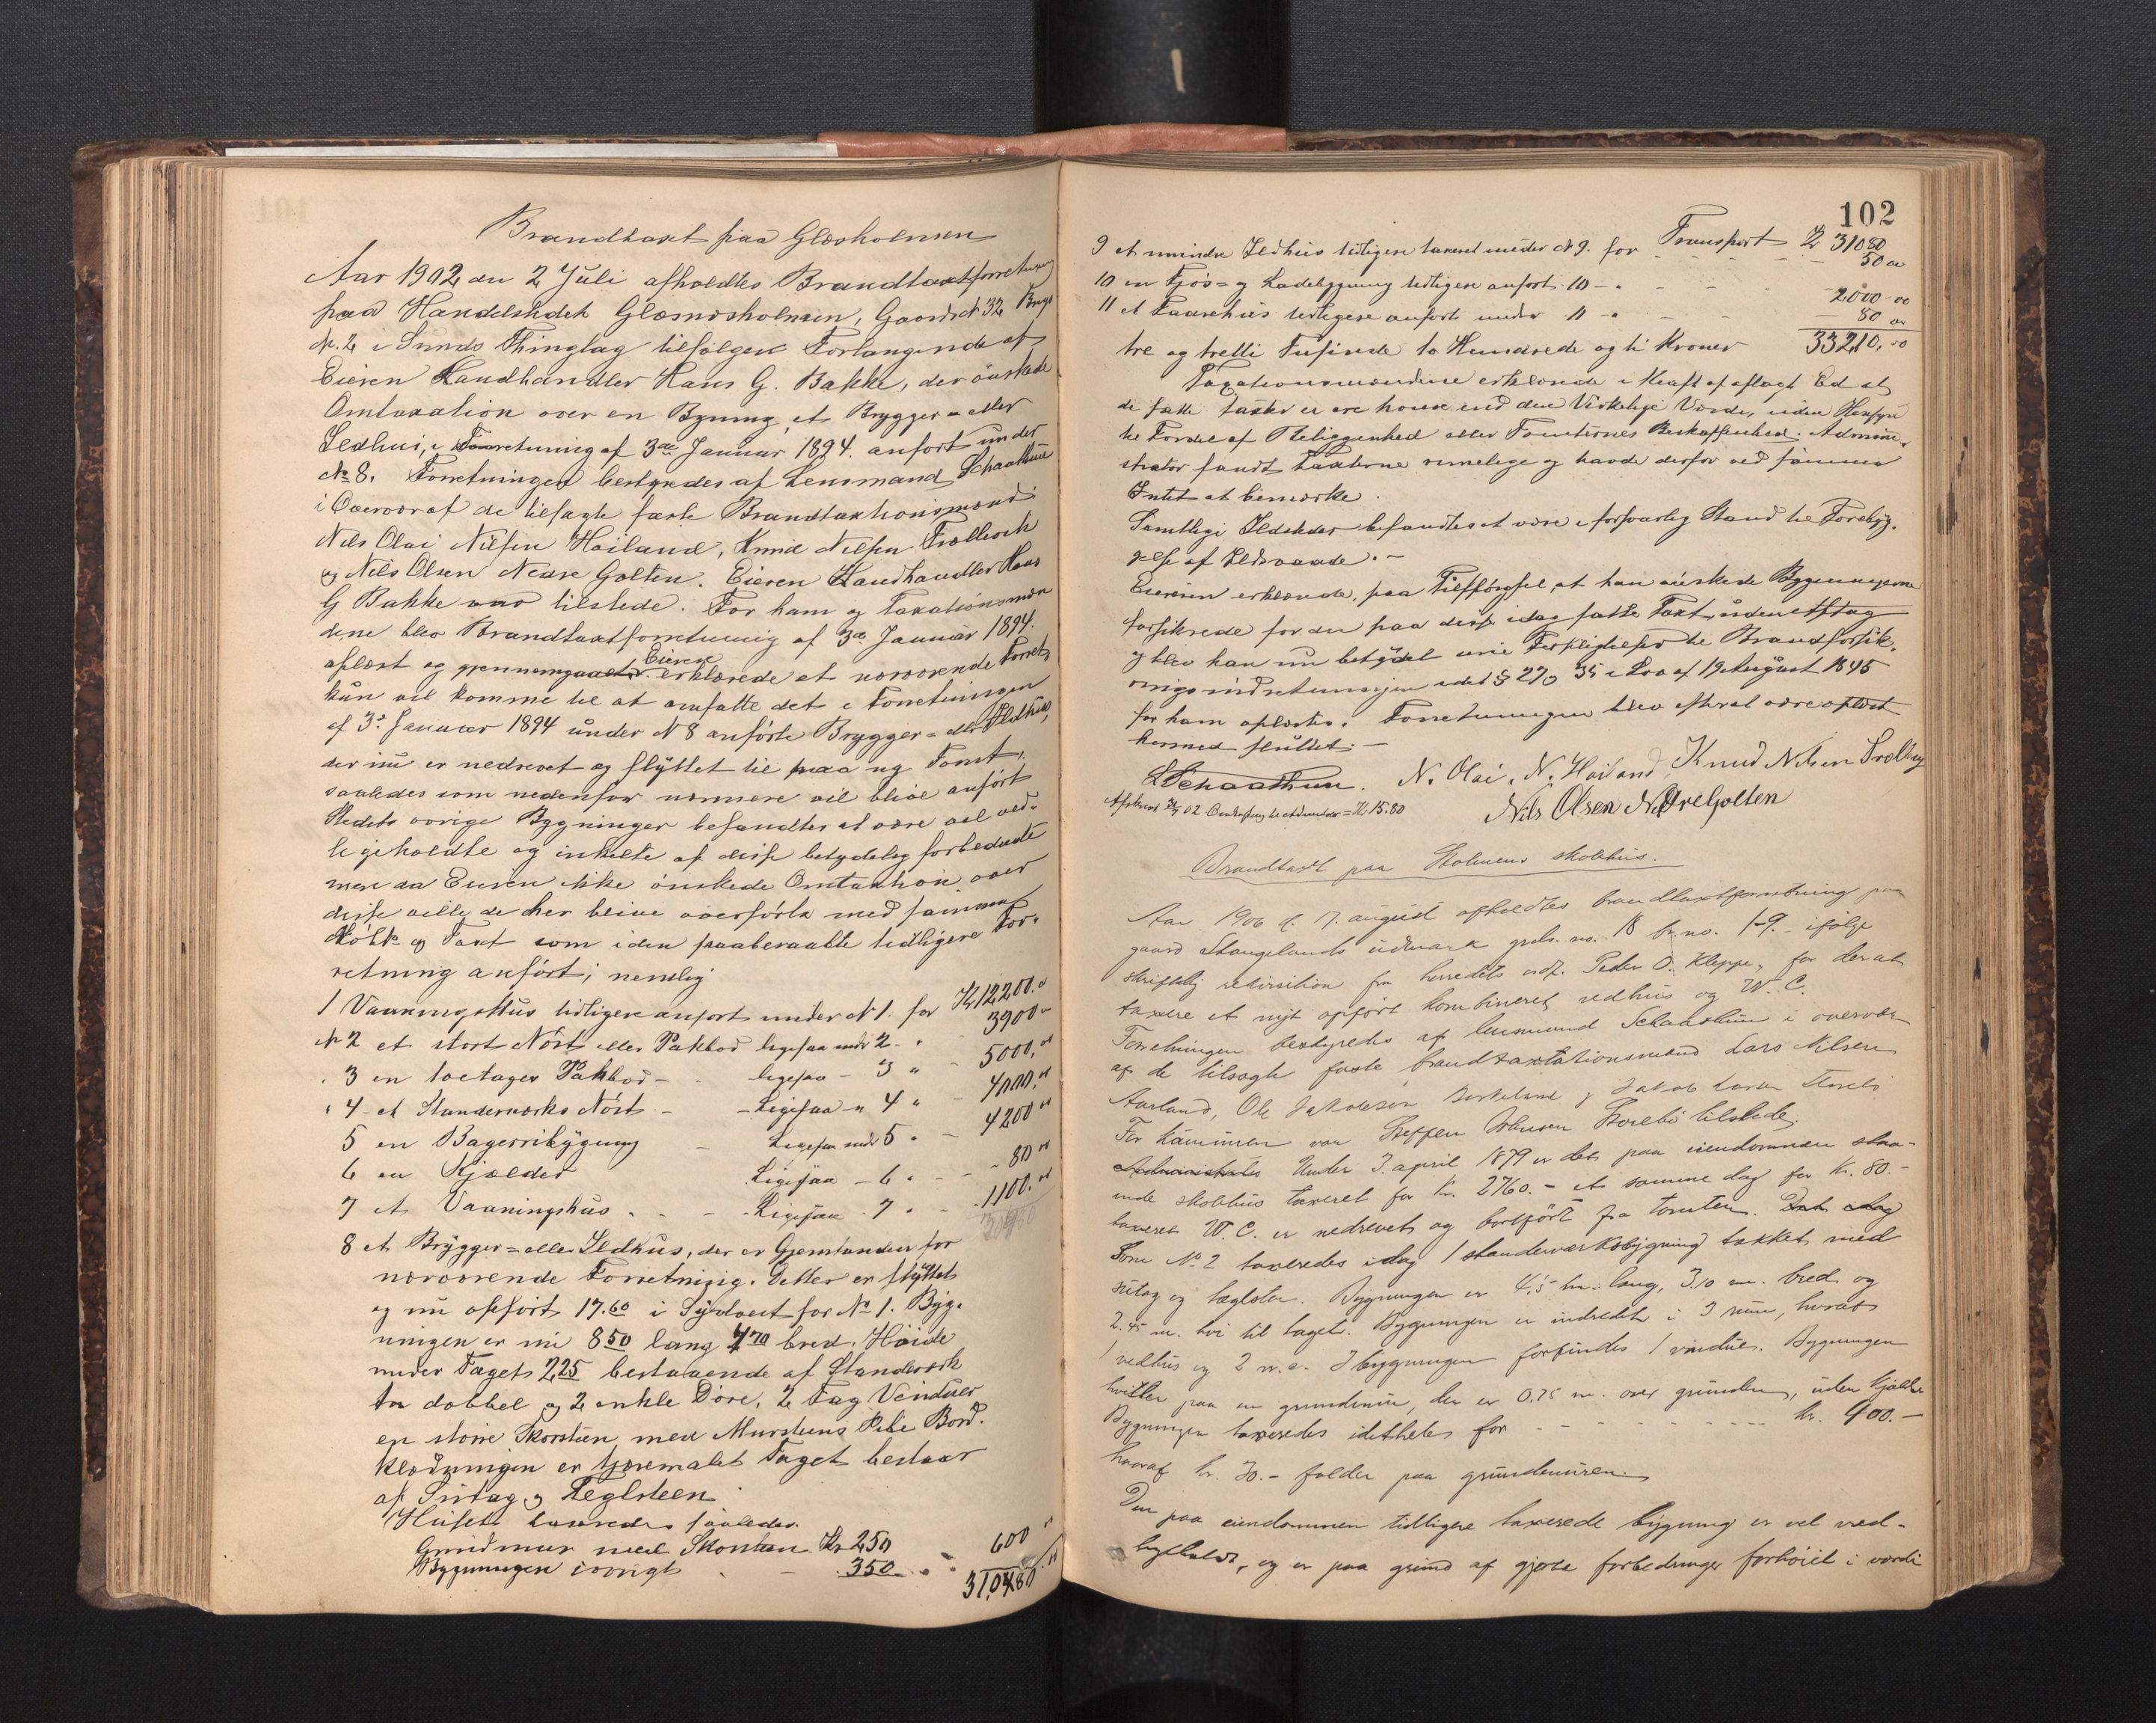 Brandtaxt paa Glæsholmen
Aar 1902, den 2 Juli afholdtes Brandtaxtforretning
paa Handelsstedet Glæsnæsholmen, Gaards № 32 Brugs
№. 2 i Sunds Thinglag tilfölge Forlangende af
Eieren Landhandler Hans G. Bakke, der önskede
Omtaxation over en Bygning, et Brygger= eller
Ildhus, i Forretning af 3die Januar 1894. anfört under
№ 8. Forretningen bestyredes af Lensmand Schaathun
i Overvær af de tilsagte faste Brandtaxtionsmænd:
Nils Olai Nilsen Höiland, Knud Nilsen Trællevik
og Nils Olsen Nedre Golten. Eieren Landhandler Hans
G Bakke var tilstede. For ham og Taxationsmæn
dene blev Brandtaxtforretning af 3die Januar 1894.
oplæst og gjennemgaaet. Eieren erklærede at nærværende Forret,
kun vil komme til at omfatte det i Forretningen
af 3die Januar 1894 under № 8 anförte Brygger= eller Ildhus,
der nu er nedrevet og flyttet til paa ny Tomt,
saaledes som nedenfor nærmere vil blive anfört
Stedets övrige Bygninger befandtes at være vel ved-
ligeholdte og enkelte af disse betydelig forbedrede
men da Eieren ikke önskede Omtaxtion over
disse ville de her blive overförte med samme
og Taxt som i den paaberaabte tidligere For-
retning anfört; nemlig
1 Vaaningshus tidligere anfört under № 1. for Kr 12,200.00
№ 2 et stort Nöst eller Pakbod ligesaa under 2 - " 3900 00
" 3 en toetages Pakbod - ligesaa - 3 " - 5000,00
" 4 - et Standerværks Nöst - - Ligesaa - " 4 " - 4000,00
5 en Bageribygning - Ligesaa under 5 " - 4200 00
6 en Kjælder Ligesaa - 6 " - - 80 00
7 et Vaaningshus " - - - Ligesaa - 7 " - 1100.00
8 et Brygger= eller Ildhus, der er Gjenstanden for
nærværende Forretning. Dette er flyttet
og nu opfört 17.60 i Sydvest for № 1. Byg-
ningen er nu 8 50 lang 4 70 bred. Höide
under Taget 2,25 bestaaende af Standværk
en dobbel og 2 enkle Döre, 2 Fag Vinduer
en större Skorsten med Murstens Pibe Bord-
klædningen er tjæremalet Taget bestaar
af Sutag og Teglsteen
Huset taxeredes saaledes
Grundmur med Skorsten Kr 250
Bygningen iövrigt - 350 " " 600 00
31,080
102
Transport Kr 31080
9 et mindre Ildhus tidligere taxeret under № 9. for - - - - 50 00
10 en Fjös= og Ladebygning tidligere anfört 10 - " - - - 2000 00
11 et Faarehus tidligere anfört under 11 - " - - 80 00
tre og tretti Tusinde to Hundrede og ti Kroner 33210,00
Taxationsmændene erklærede i Kraft af aflagt Ed at
de satte Taxter ei ere höiere end den Virkelige Værde, uden Hensyn
til Fordel af Beliggenhed eller Tomternes Beskaffenhed. Admini-
strator fandt Taxterne rimelige og havde derfor ved samme
Intet at bemærke.
Samtlige Ildsteder befandtes at være i forsvarlig Stand til Forebyg-
gelse af Ildsvaade. -
Eieren erklærede, paa Tilförgsel, at han önskede Bygningerne
forsikrede for den paa disse idag satte Taxt uden Aftag
og blev han nu betydet sine Forpligtelser til Brandforsik-
ringsindretningen idet § 27 og 35 i Lov af 19 August 1845
for ham oplæstes. Forretningen blev efterat være oplæst
hermed sluttet. -
LSchaathun. N. Olai. N. Höiland Knud Nilsen Trællevig
Nils Olsen Nedre Golten
Brandtaxt paa Holmens skolhus.
Aar 1906 d. 7. august afholdtes brandtaxtforretning paa
gaard Stangelands udmark grds. no. 18 br.no. 19. - ifölge
skriftlig rekvisition fra herredets ordf. Peder O. Kleppe, for der at
taxere et nyt opfört kombineret vedhus og W. C.
Forretningen bestyredes af lensmand Schaathun i overvær
af de tilsagte faste brandtaxtationsmænd Lars Nilsen
Aarland, Ole Jakobsen og Jakob Larsen Storebö
For kommunen var Steffen Johnsen Storebö tilstede.
Under 3. april 1879 er det paa eiendommen staa-
ende skolhus taxeret for kr. 2760.- et samme dag for Kr. 80.-
taxeret W. C. er nedrevet og bortfört fra tomten.
Som № 2 taxeredes idag 1 standerværksbygning tækket med
sutag og teglsten. Bygningen er 4,5 m. lang, 3,10 m. bred og
2.45 m. höi til taget. Bygningen er indredet i 3 rum, hvoraf
1 vedhus og 2 w.c. I bygningen forfindes 1 vindue. Bygningen
hviler paa en grundmur, der er 0,75 m. over grunden, uden kjælder
Bygningen taxeredes idethele for - - - - - - kr. 400.-
hvoraf kr. 30.- falder paa grundmuren.
Den paa eiendommen tidligere taxerede bygning er vel ved-
ligeholdt, og er paa grund af gjorte forbedringer forhöiet i værdi